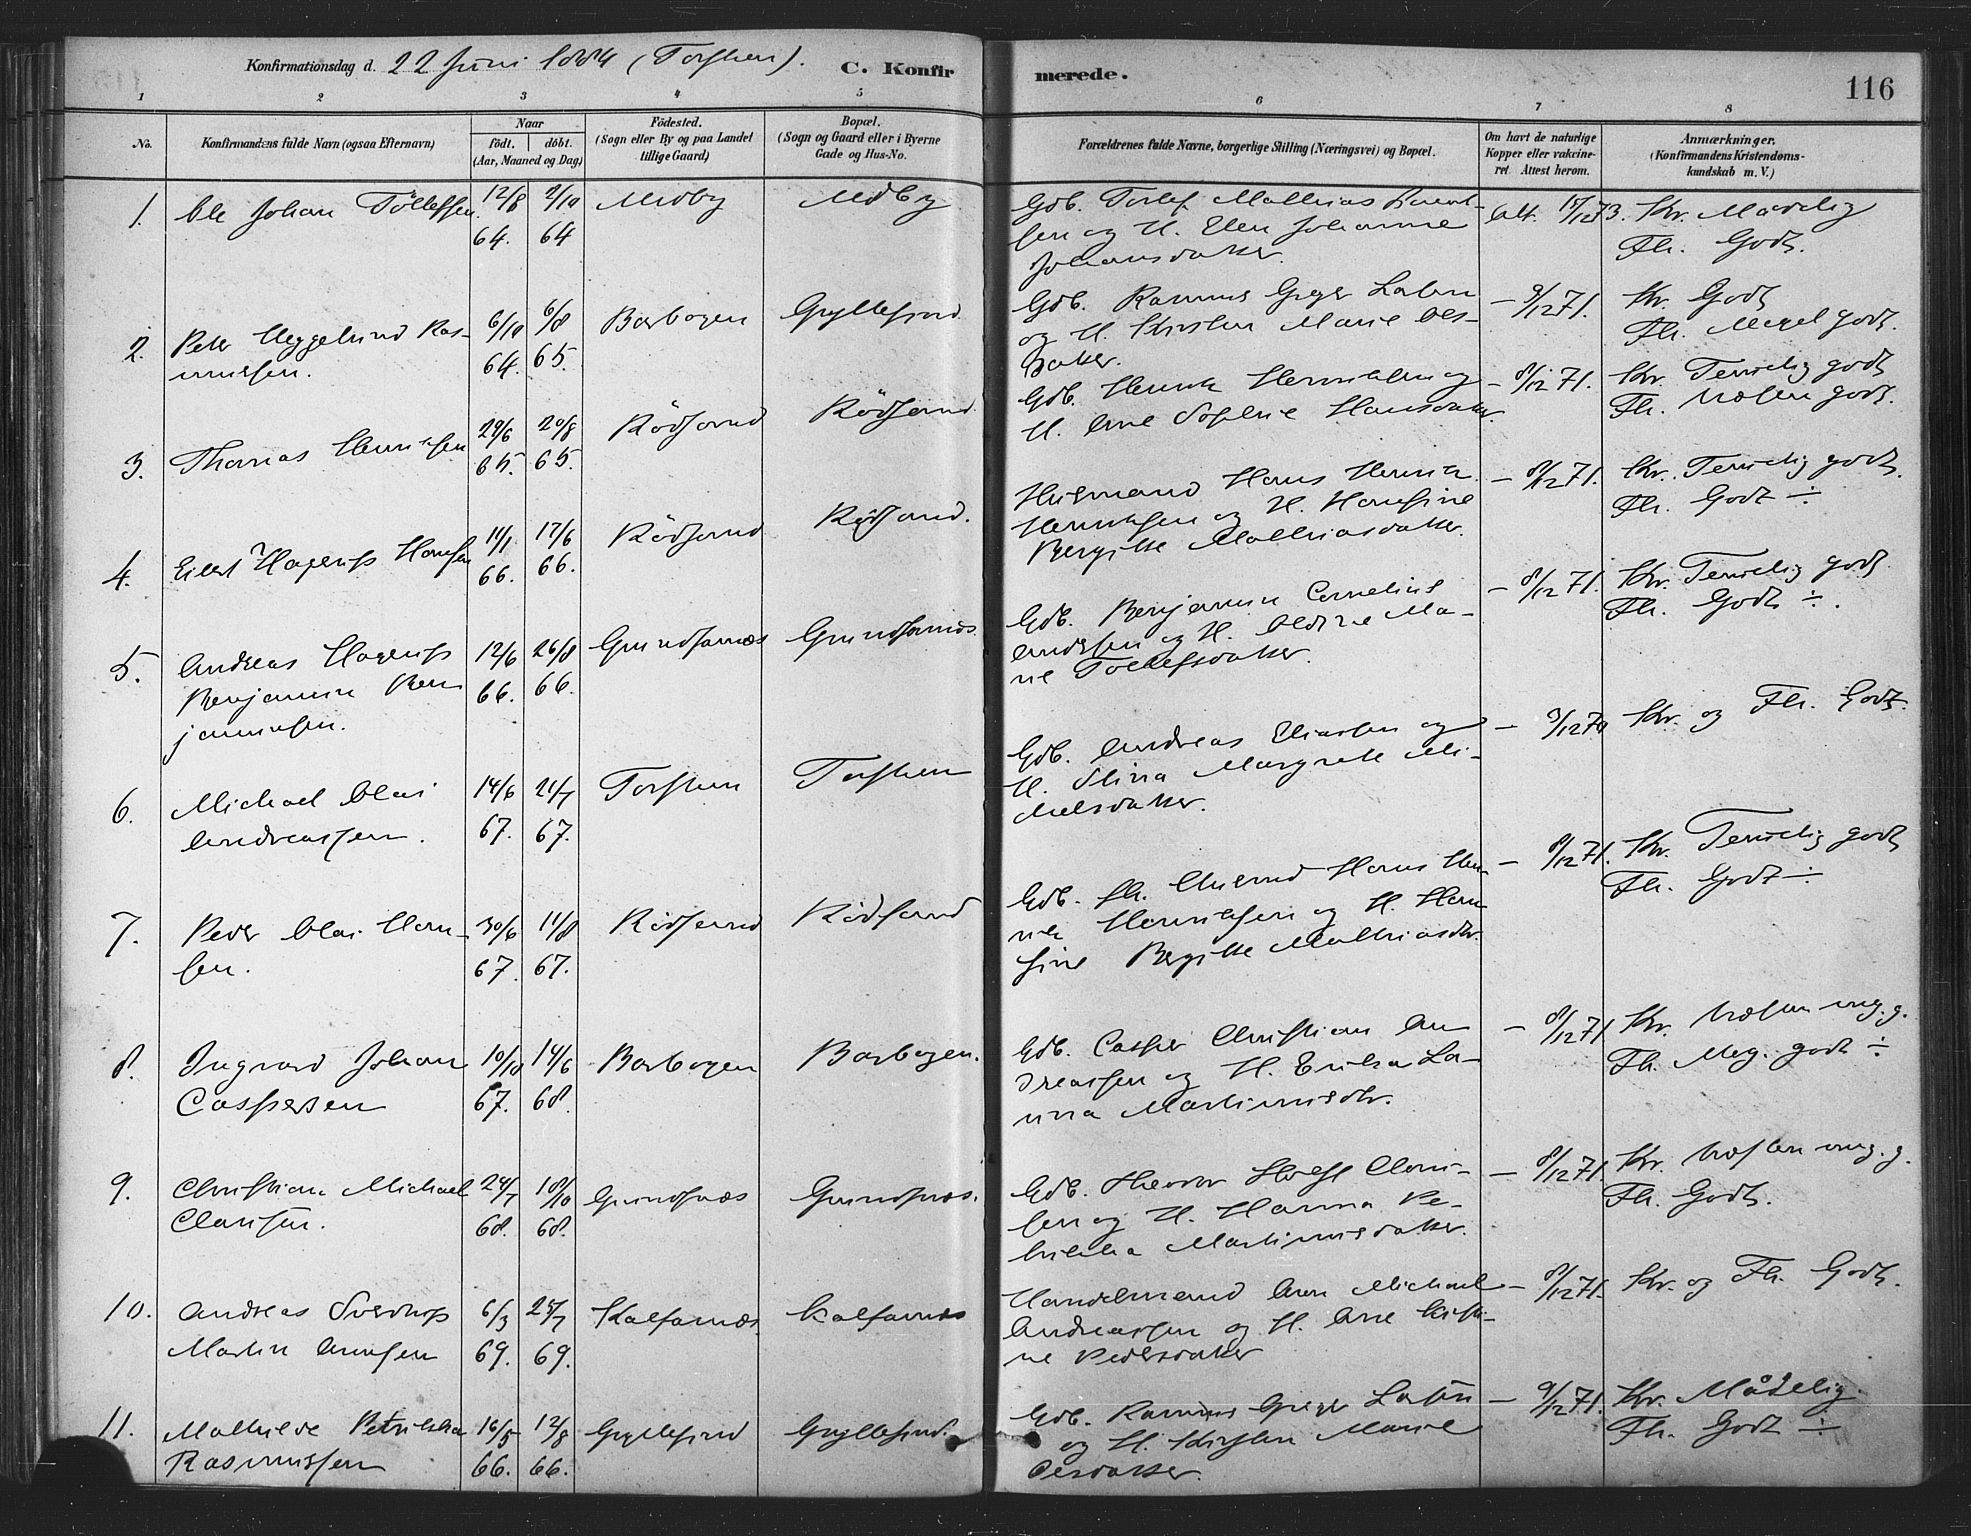 Konfirmationsdag d. 22 Juni 1884 (Torsken). C. Konfirmerede. 116
1 2 3 4 5 6 7 8
No. Konfirmandens fulde Navn (ogsaa Efternavn) Naar født. døbt. (Aar, Maaned og Dag) Fødested. (Sogn eller By og paa Landet tillige Gaard) Bopæl. (Sogn og Gaard eller i Byerne Gade og Hus-No. Forældrenes fulde Navne, borgerlige Stilling (Næringsvei) og Bopæl. Om havt de naturlige Kopper eller vakcineret. Attest herom. Anmærkninger. (Konfirmandens Kristendomskundskab m. V.)
1. Ole Johan Tollefsen 12/8 64. 2/10 64 Medby Medby
Gdb. Tollef Mathias
sen og H. Elen Johanne
Johansdatter.
Att. 15/12 73. Kr. Maadelig
Fl. Godt.
2. Peter Heggelund Ras-
mussen. 6/10 64. 6/8 65. Barbogen Gryllefjord
Gdb. Rasmus Greger
og H. Kirsten Marie Ols-
datter.
— 9/12 71. Kr. Godt
Fl. Meget godt.
3. Thomas Henriksen 29/6 65. 20/8 65. Rødsand Rødsand
Gdb. Henrik Henriksen og
H. Ane Sophie Hansdatter.
— 8/12 71. Kr. Temelig godt
Fl. Næsten godt.
4. Eilert Hagerup Hansen 11/1 66. 17/6 66. Rødsand Rødsand.
Husmand Hans Henrik
Henriksen og H. Hansine
Bergitte Mathiasdatter.
— 8/12 71. Kr. Temelig godt
Fl. Godt ÷
5. Andreas Hagerup
Benjamin Ben
jaminsen. 12/6 66. 26/8 66. Grundfarnæs Grundfarnæs.
Gdb. Benjamin Cornelius
Andersen og H. Oldine Ma-
rie Tollefsdatter.
— 8/12 71. Kr. Temelig godt
Fl. Godt ÷.
6. Michael Olai
Andreassen. 14/6 67. 21/7 67. Torsken Torsken
Gdb. Andreas Eliassen og
H. Stina Margrete Mi-
kelsdatter.
— 3/12 70 Kr. og Fl. Godt.
7. Peder Olai Han-
sen. 30/6 67. 11/8 67. Rødsand Rødsand
Gdb. fh. Husmd Hans Hen-
rik Henriksen og H. Han
sine Bergitte Mathiasdtr.
— 8/12 71. Kr. Temelig godt
Fl. Godt ÷
8. Ingvard Johan
Caspersen 10/10 67. 14/6 68. Barbogen Barbogen.
Gdb. Casper Christian An
dreassen og H. Erika La-
Martinusdtr.
— 8/12 71 Kr. Næsten meg. g.
Fl. Meg. godt ÷
9. Christian Michael
Clausen. 24/7 68. 18/10 68. Grundfnæs Grundfnæs.
Gdb. Holst Clau-
sen og H. Hanna Pe-
trikka Martinusdatter.
— 8/12 71. Kr. Næsten meg. g.
Fl. Godt.
10. Andreas Sverdrup
Martin Arnsen 6/3 69. 25/7 69. Kalfarnæs. Kalfarnæs
Handelsmand Arn Michael
Andreassen og H. Ane Kirsti-
ne Pedersdatter
— 8/12 71. Kr. og Fl. Godt.
11. Mathilde Petrikka
Rasmussen 16/5 66. 12/8 66. Gryllefjord Gryllefjord.
Gdb. Rasmus Greger
og H. Kirsten Marie
Olesdatter.
— 9/12 71. Kr. Mådelig.
Fl. Godt ÷